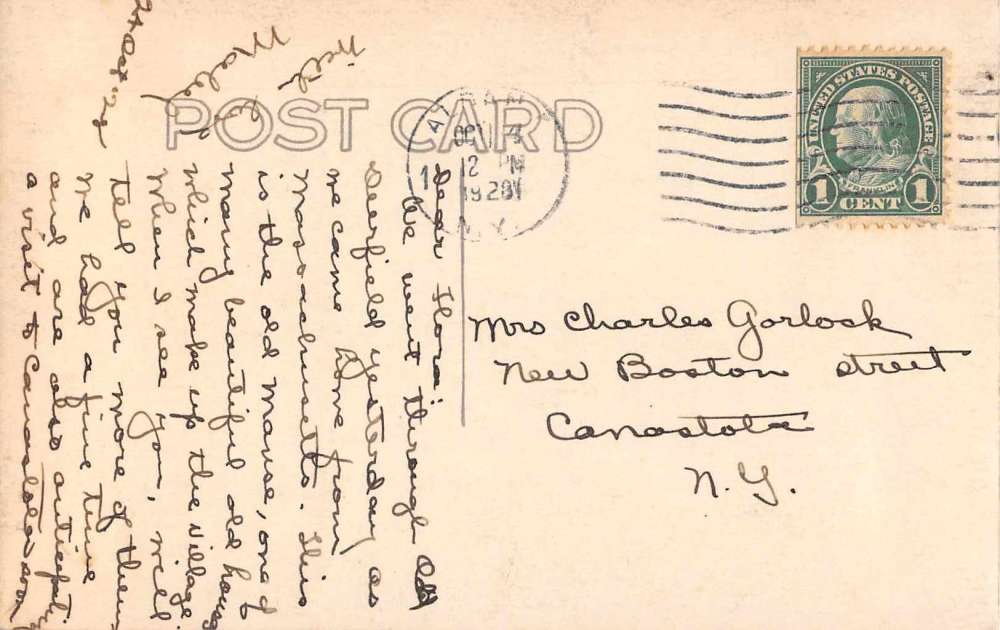 POST CARD
OCT 4
12 PM
1928
N.Y.
UNITED STATES POSTAGE
FRANKLIN
1 CENT 1
Dear Flora:
We went through Old
Deerfield yesterday as
we came home from
Massachusetts. This
is the old Manse, one of
many beautiful old houses
which make up the village.
When I see you, will
tell you more of them
We had a fine time
and are also anticipating
a visit to Canastota soon
Will
Mabel
Mrs Charles Gorlock
New Boston street
Canastota
N.Y.